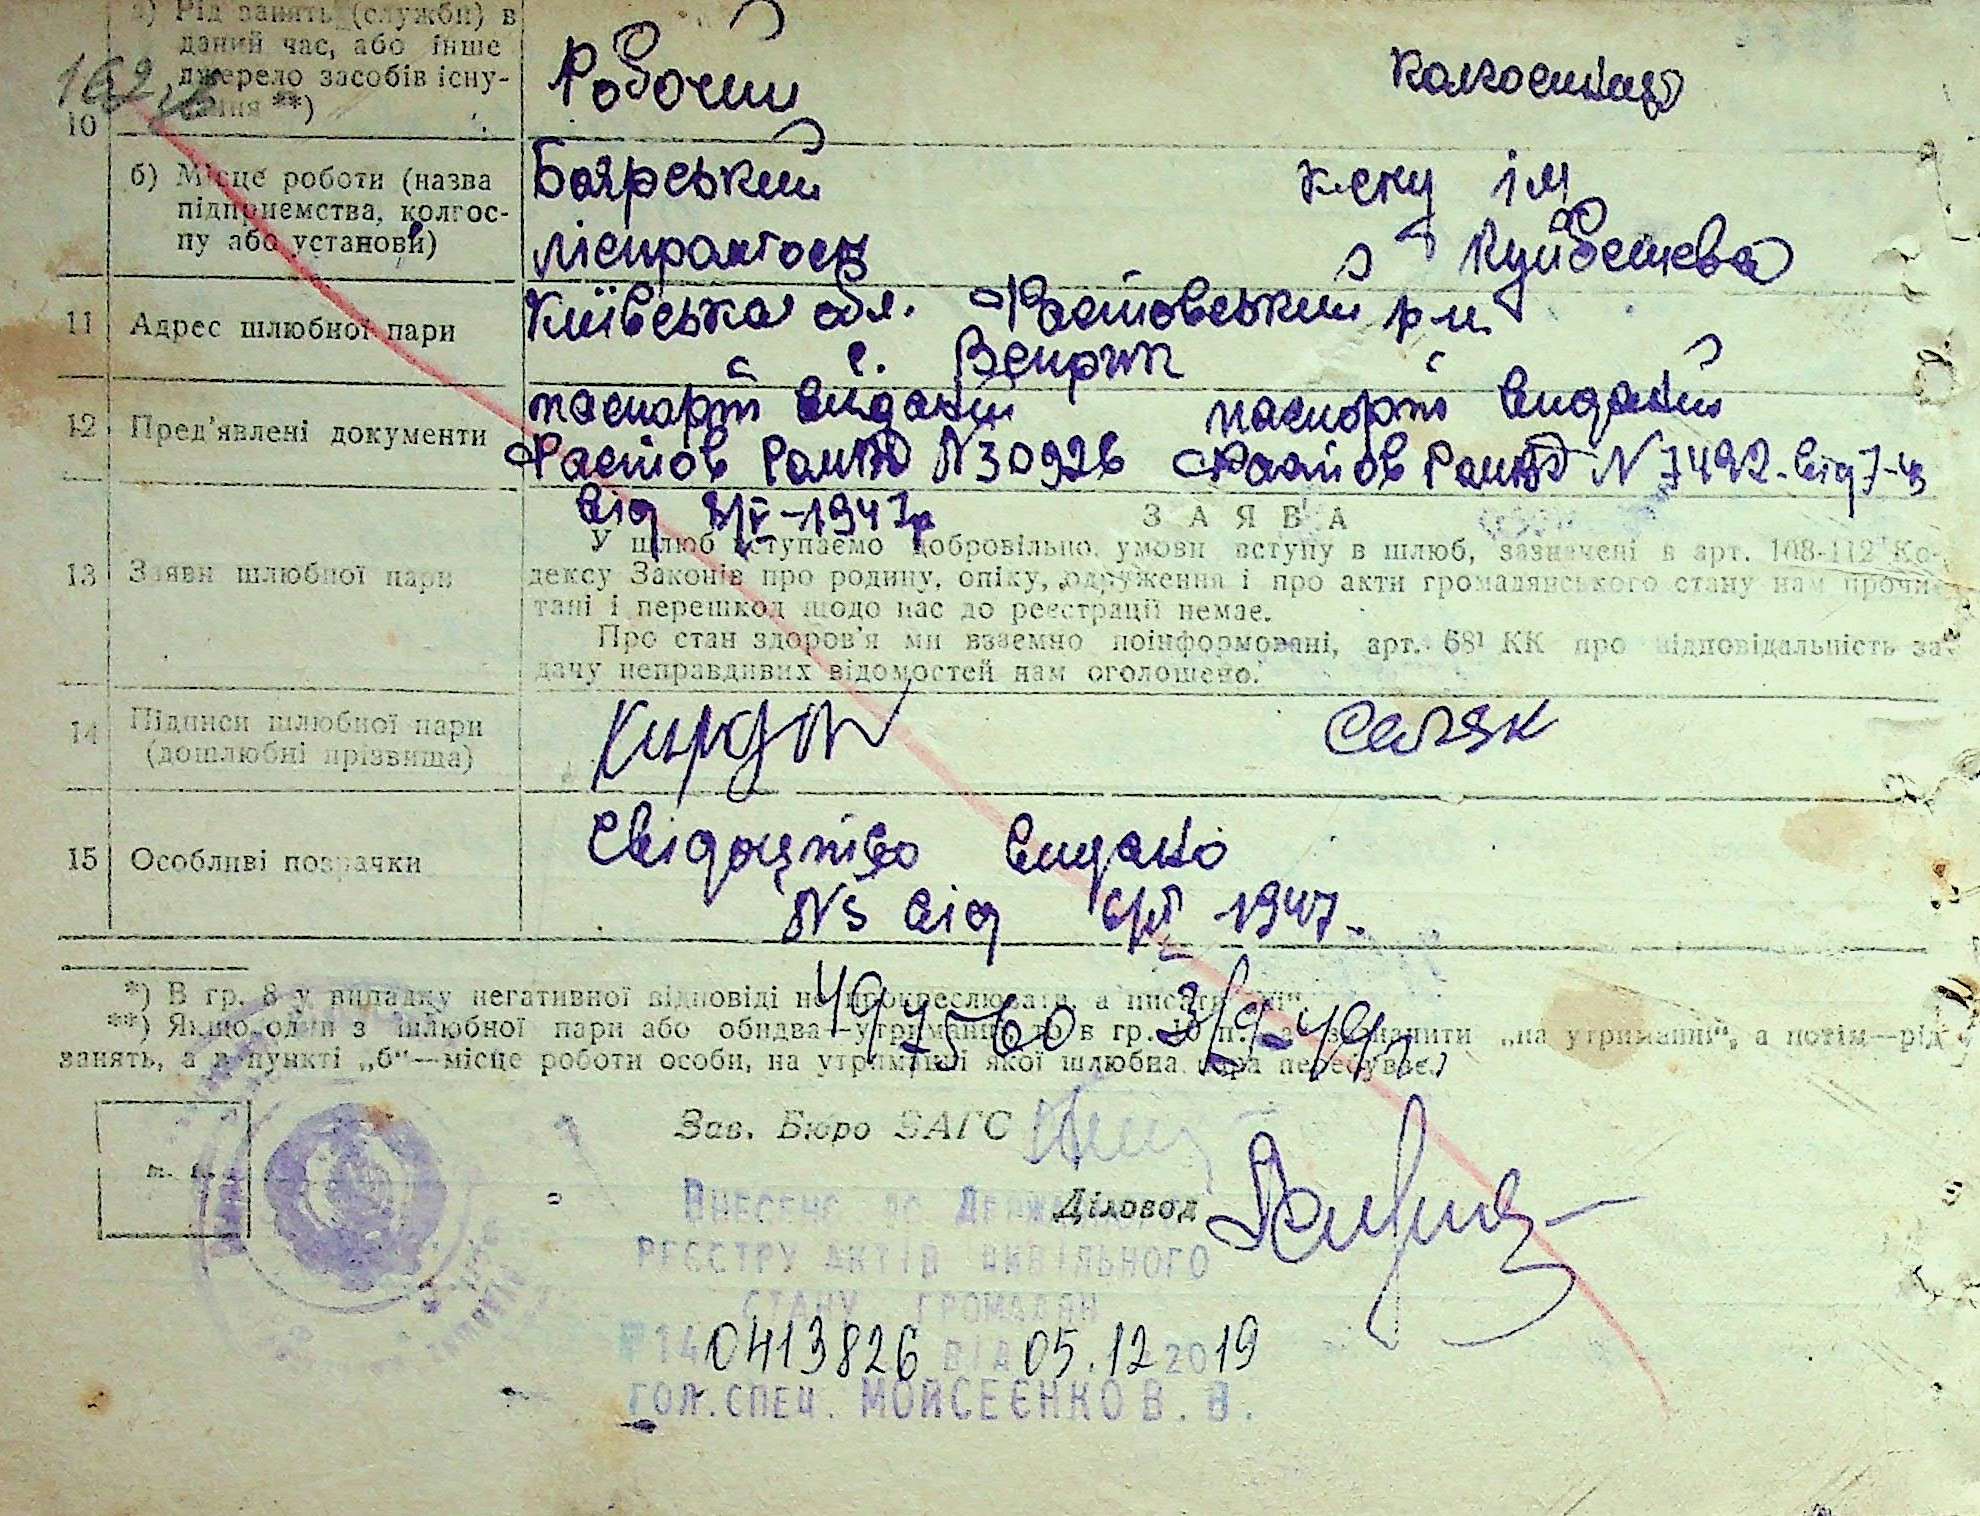 а) Рід занять (службн) в
даний час, або інше
джерело засобів існу-
вання **)
Робочий
колгоспниця
10
б) Місце роботи (назва
підприємства, колгос-
пу або установи)
Боярський
ліспромгосп
к-спу ім
Куйбешева
11 Адрес шлюбної пари
Київська обл. Фастовський р-н
с. Веприк
12 Пред'явлені документи
паспорт виданий
Фастов РайВД N30926
від
1947р
паспорт виданий
Фастов N 7492
13 Заяви шлюбної пари
ЗАЯВА
У шлюб вступаємо добровільно, умови вступу в шлюб, зазначені в арт. 108-112 Ко-
дексу Законів про родину, опіку, одруження і про акти громадянського стану нам прочи-
тані і перешкод щодо нас до реєстрації немає.
Про стан здоров'я ми взаємно поінформовані, арт. 68¹ КК про відповідальність за
дачу неправдивих відомостей нам оголошено.
14 Підписи шлюбної пари
(дошлюбні прізвища)
15 Особливі позначки
Свідоцтво видано
N5 від 1947.
*) В гр. 8 у випадку негативної відповіді не прокреслювати, а писати
497560
**) Якщо один з шлюбної пари або обидва—утриманці, то в гр. 10 п. зазначити „на утриманні“, а потім—рід
занять, а в пункті „б“—місце роботи особи, на утриманні якої шлюбна пара перебуває.
Зав. Бюро ЗАГС
Діловод
Внесено до Державного
реєстру актів цивільного
стану громадян
№ 140413826 від 05.12 2019
гол. спец. Мойсеєнко В. В.